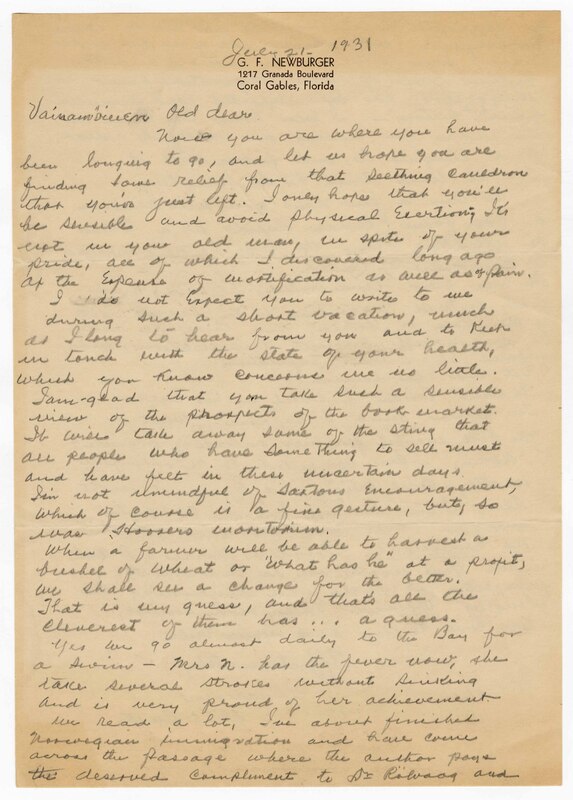 July 21- 1931
G. F. NEWBURGER
1217 Granada Boulevard
Coral Gables, Florida
Old dear
Now you are where you have
been longing to go, and let us hope you are
finding some relief from that seething cauldron
that you've just left. I only hope that you'll
be sensible and avoid physical exertion, It's
not in you old man, in spite of your
pride, all of which I discovered long ago
at the expense of mortification as well as pain.
I do not expect you to write to me
during such a short vacation, much
as I long to hear from you and to keep
in touch with the state of your health,
which you know concerns me no little.
I am glad that you take such a sensible
view of the prospects of the book market.
It will take away some of the sting that
all people who have something to sell must
and have felt in these uncertain days
I'm not unmindful of Saxtons Encouragement,
which of course is a fine gesture, but, so
was Hoovers moritorium.
When a farmer will be able to harvest a
bushel of wheat or "what has he" at a profit,
we shall see a change for the better.
That is my guess, and thats all the
cleverest of them has ... a guess.
Yes we go almost daily to the Bay for
a swim - Mrs N. has the fever now, she
take several strokes without sinking
and is very proud of her achievement
We read a lot, I've about finished
Norwegian immigration and have come
across the passage where the author pays
the deserved compliment to Dr Rölvaag and